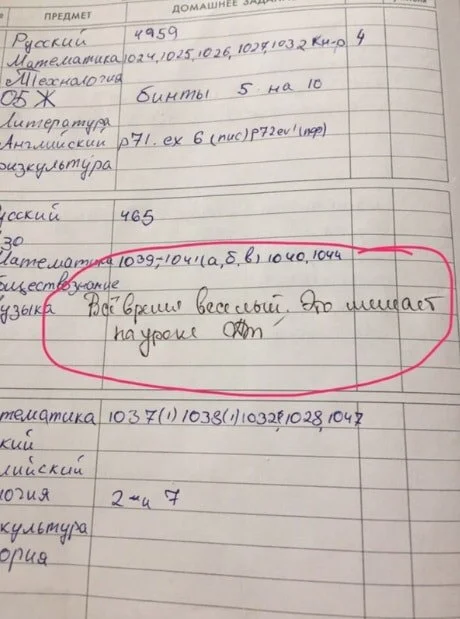 ПРЕДМЕТ ДОМАШНЕЕ ЗАДАН
Русский 4959
Математика 1024, 1025, 1026, 1027, 1032 Кн-р 4
Технология
ОБЖ бинты 5 на 10
Литература
Английский р71. ex 6 (пис) р72 ex1 (пер)
физкультура
усский 465
зо
Математика 1039, 1041 (а, б, в) 1040, 1044
бществознание
узыка Всё время веселый. Это мешает
на уроке
тематика 1037(1) 1038(1) 1032, 1028, 1047
ский
лийский
логия 2 и 7
культура
ория